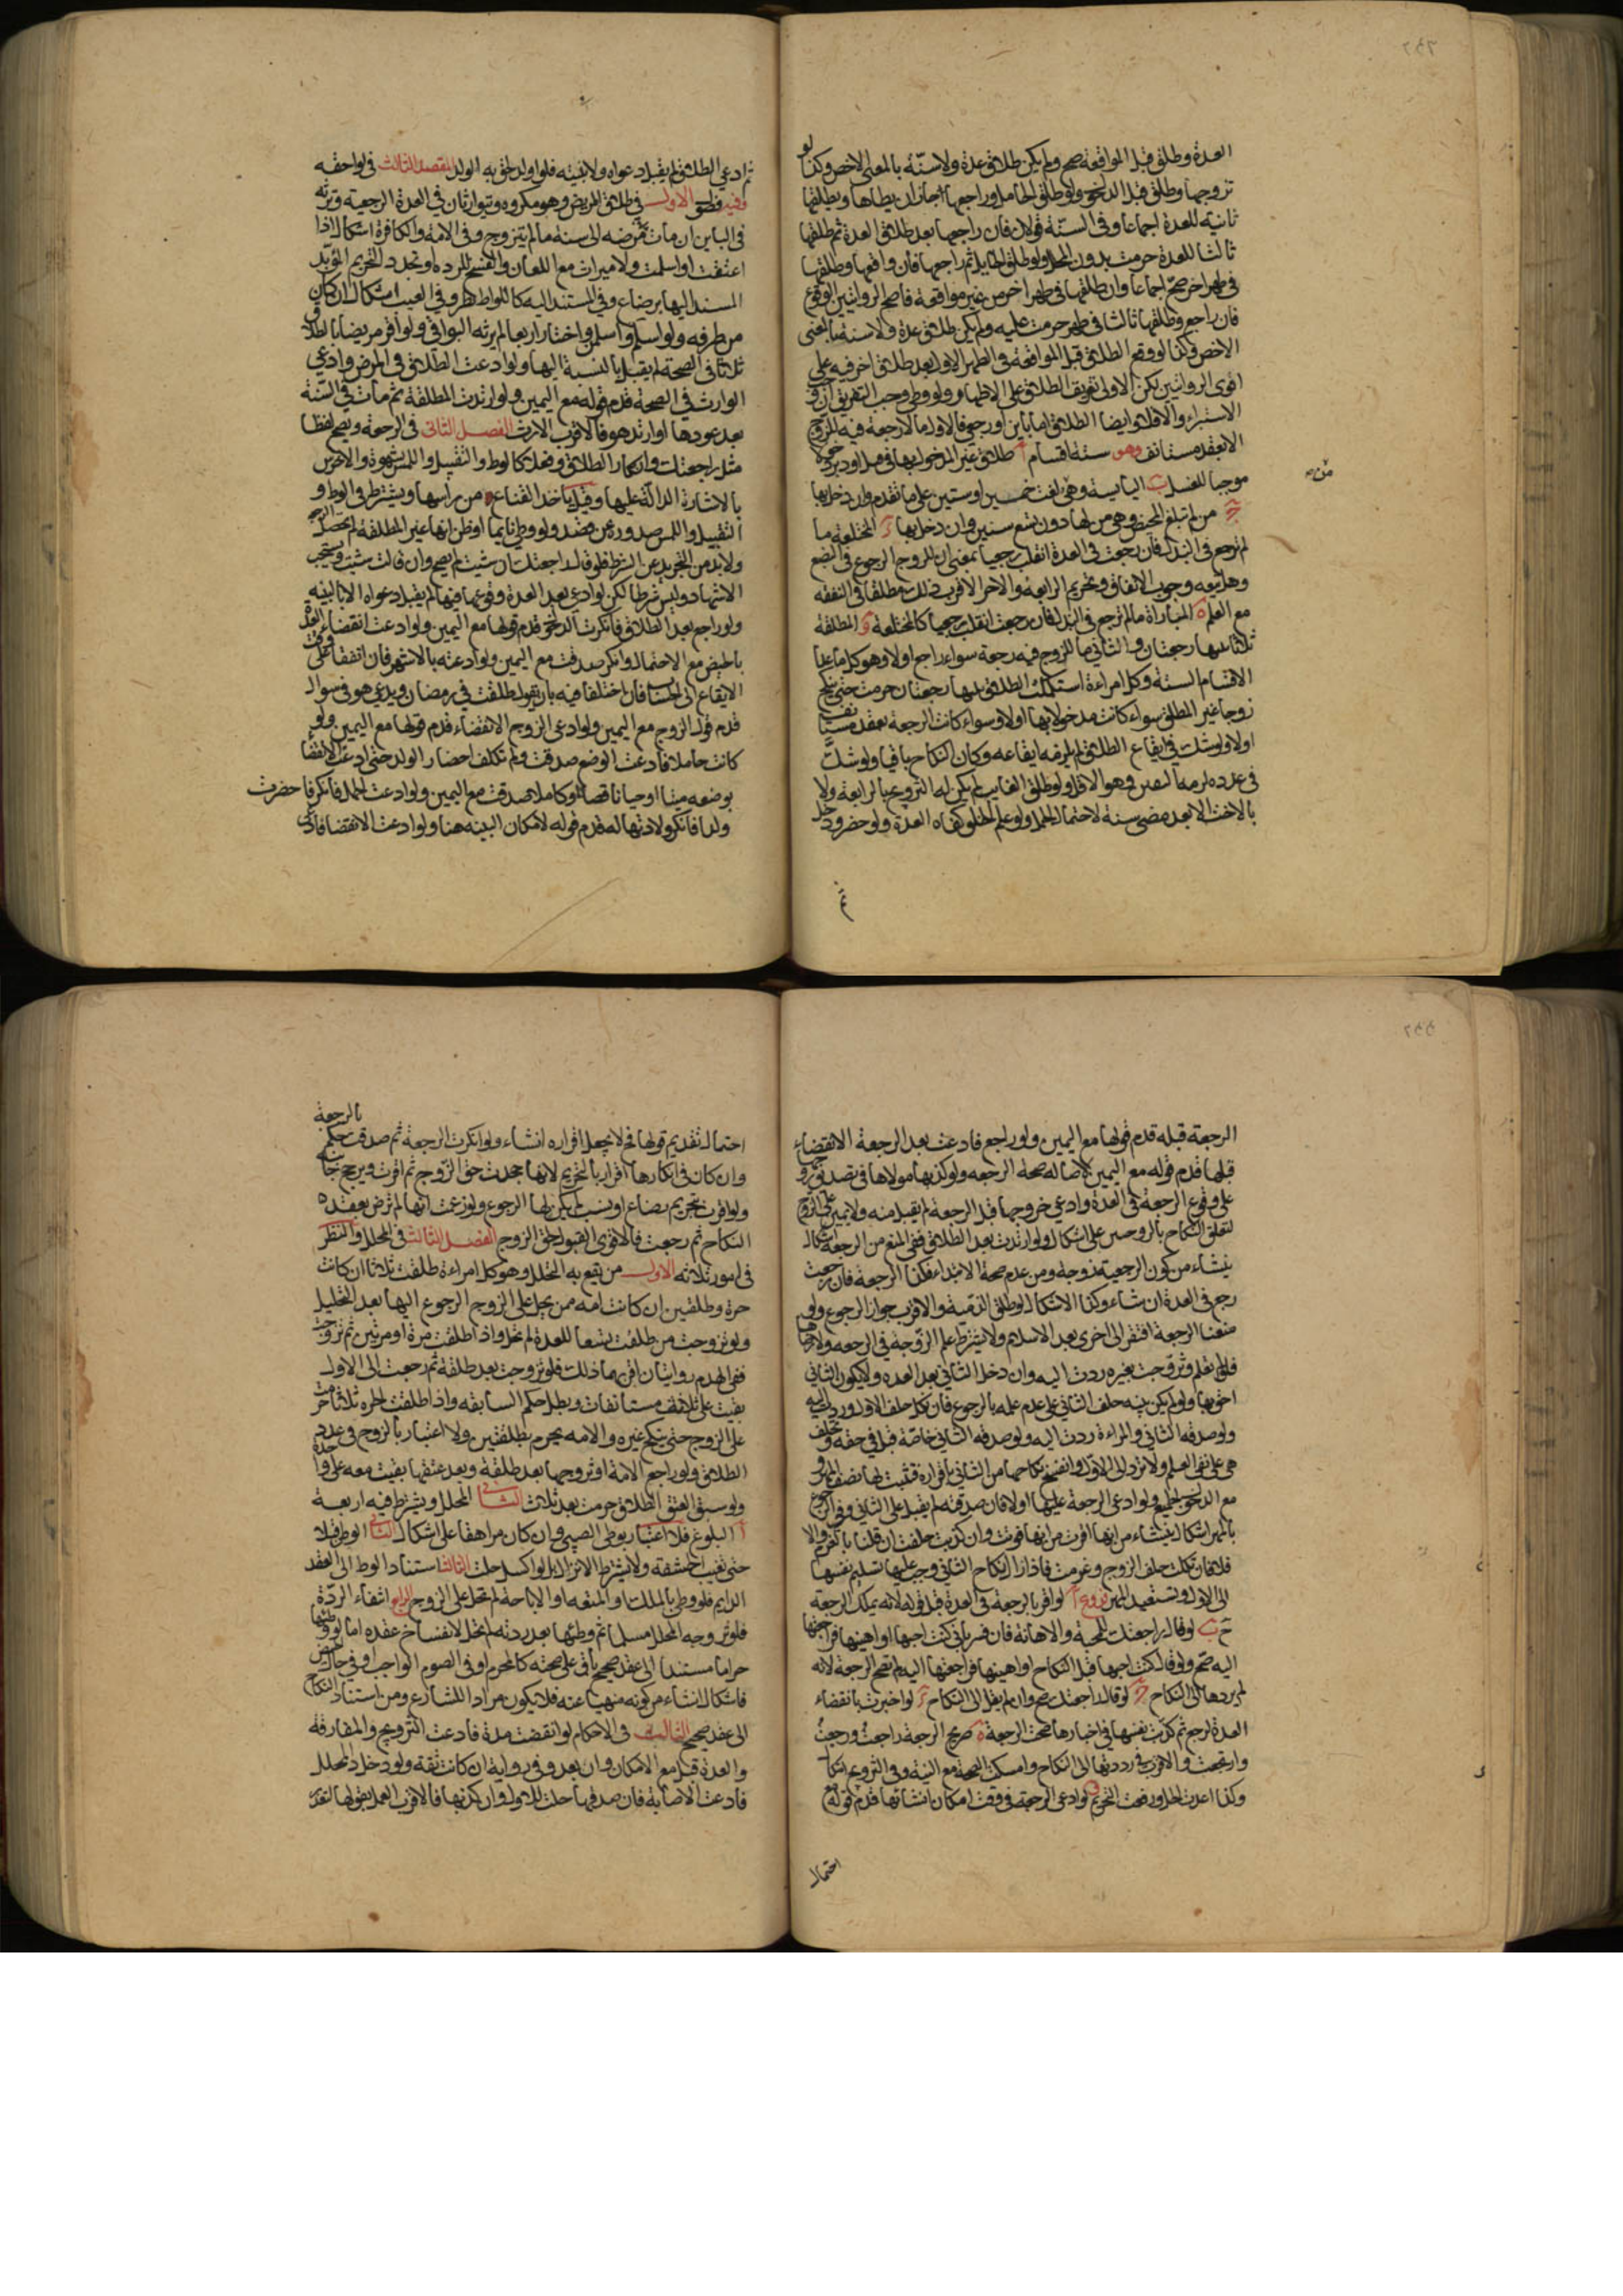 العدة وطلق قبل المواقعة صح ولم يكن طلاق عدة ولا سنة بالمعنى الاخص وكذا لو
تزوجها وطلق قبل الدخول ولو طلق الحامل وراجعها جاز ان يطاها ويطلقها
ثانية للعدة اجماعا وفي السنة قولان فان راجعها بعد طلاق العدة ثم طلقها
ثالثا للعدة حرمت بدون المحلل ولو طلق الحايل ثم راجعها فان واقعها وطلقها
في طهر اخر صح اجماعا وان طلقها في طهر اخر من غير مواقعة فاصح الروايتين الوقوع
فان راجع وطلقها ثالثا في طهر حرمت عليه ولم يكن طلاق عدة ولا سنة بالمعنى
الاخص وكذا لو وقع الطلاق قبل المواقعة في الطهر الاول بعد طلاق اخر فيه على
اقوى الروايتين لكن الاولى تفريق الطلاق على الاطهار ولو وطئ وجب التفريق ان وجب
الاستبراء والا فلا وايضا الطلاق اما باين او رجعي فالاول ما لا رجعة فيه للزوج
الا بعقد مستانف وهو ستة اقسام ا طلاق غير المدخول بها في قبل او دبر دخولا
موجبا للغسل ب اليايسة وهي لغت خمسين او ستين على ما تقدم وان دخل بها
ج من لم تبلغ المحيض وهي من لها دون تسع سنين وان دخل بها د المختلعة ما
لم ترجع في البذل فان رجعت في العدة انقلب رجعيا بمعنى ان للزوج الرجوع في البضع
وهل يتبعه وجوب الانفاق وتحريم الرابعة والاخت الاقرب ذلك مطلقا في النفقة
مع العلم ه المباراة ما لم ترجع في البذل فان رجعت انقلب رجعيا كالمختلعة و المطلقة
ثلثا بينها رجعتان والثاني ما للزوج فيه رجعة سواء راجع اولا وهو كل ما عدا
الاقسام الستة وكل امراءة استكملت الطلاق بينها رجعتان حرمت حتى تنكح
زوجا غير المطلق سواء كانت مدخولا بها اولا وسواء كانت الرجعة بعقد مستانف
اولا ولو شك في ايقاع الطلاق لم يلزمه ايقاعه وكان النكاح باقيا ولو شك
في عدده لزمه اليقين وهو الاقل ولو طلق الغايب لم يكن له التزويج بالرابعة ولا
بالاخت الا بعد مضي سنة لاحتمال الحمل ولو علم الخلو كفاه العدة ولو حضر ودخل
ثم
ثم ادعى الطلاق لم يقبل دعواه ولا بينته فلو اولد لحق به الولد المقصد الثالث في لواحقه
وفيه فصول الاول في طلاق المريض وهو مكروه ويتوارثان في العدة الرجعية وترثه
في الباين ان مات في مرضه الى سنة ما لم يتزوج وفي الامة والكافرة اشكال اذا
اعتقت او اسلمت ولا ميراث مع اللعان والفسخ للردة او تجدد التحريم المؤبد
المستند اليها برضاع وفي المستند اليه كاللواط نظر وفي العيب اشكال ان كان
من طرفه ولو اسلم واسلمن واختار اربعا لم يرثه البواقي ولو اقر مريضا بالطلاق
ثلاثا في الصحة لم يقبل بالنسبة اليها ولو ادعت الطلاق في المرض وادعى
الوارث في الصحة قدم قوله مع اليمين ولو ارتدت المطلقة ثم مات في السنة
بعد عودها او ارتد هو فالاقرب الارث الفصل الثاني في الرجعة ويصح لفظا
مثل راجعتك وانكار الطلاق وفعلا كالوطئ والتقبيل واللمس بشهوة والاخرس
بالاشارة الدالة عليها وقيل باخذ القناع من راسها ويشترط في الوطئ و
التقبيل واللمس صدوره عن قصد ولو وطئ نايما او ظن انها غير المطلقة لم تحصل الرجعة
ولا بد من التجريد عن الشرط فلو قال راجعتك ان شئت لم يصح وان قالت شئت ويستحب
الاشهاد وليس شرطا لكن لو ادعى بعد العدة وقوعها فيها لم يقبل دعواه الا بالبينة
ولو راجع بعد الطلاق فانكرت الدخول قدم قولها مع اليمين ولو ادعت انقضاء العدة
بالحيض مع الاحتمال وانكر صدقت مع اليمين ولو ادعته بالاشهر فان اتفقا على وقت
الايقاع الى الحساب فان اختلفا فيه بان يقول طلقت في رمضان ويدعي هو في شوال
قدم قول الزوج مع اليمين ولو ادعى الزوج الانقضاء قدم قولها مع اليمين ولو
كانت حاملا فادعت الوضع صدقت ولم تكلف احضار الولد حتى ادعت الانقضاء
بوضعه ميتا او حيا ناقصا او كاملا صدقت مع اليمين ولو ادعت الحمل فانكر فاحضرت
ولدا فانكر ولادتها له قدم قوله لامكان البينة هنا ولو ادعت الانقضاء فادعى
الرجعة قبله قدم قولها مع اليمين ولو راجع فادعت بعد الرجعة الانقضاء
قبلها قدم قوله مع اليمين لاصالة صحة الرجعة ولو كذبها مولاها في تصديق الزوج
على وقوع الرجعة في العدة وادعى خروجها قبل الرجعة لم يقبل منه ولا يمين على الزوج
لتعلق النكاح بالزوجين على اشكال ولو ارتدت بعد الطلاق ففي المنع من الرجعة اشكال
ينشاء من كون الرجعية زوجة ومن عدم صحة الابتداء فكذا الرجعة فان رجعت
رجع في العدة ان شاء وكذا الاشكال لو طلق الذمية والاقرب جواز الرجوع ولو
منعنا الرجعة افتقر الى اخرى بعد الاسلام ولا يشترط علم الزوجة في الرجعة ولا رضاها
فلو لم تعلم وتزوجت بغيره ردت اليه وان دخل الثاني بعد العدة ولا يكون الثاني
احق بها ولو لم يكن بينة حلف الثاني على عدم علمه بالرجوع فان نكل حلف الاول وردت عليه
ولو صدقه الثاني والمراءة ردت اليه ولو صدقه الثاني خاصة قبل في حقه وتحلف
هي على نفي العلم ولا ترد الى الاول وانفسخ نكاحها من الثاني باقراره فثبت لها نصف المهر و
مع الدخول الجميع ولو ادعى الرجعة عليها اولا فان صدقته لم يقبل على الثاني وفي الرجوع
بالمهر اشكال ينشاء من انها اقرت من انها فوتت وان كذبت حلفت ان قلنا بالغرم والا
فلا فان نكلت حلف الزوج وغرمت فاذا زال نكاح الثاني وجب عليها تسليم نفسها
الى الاول وتستعيد المهر فروع ا لو اقر بالرجعة في العدة قبل قوله لانه يملك الرجعة
ح ب لو قال راجعتك للمحبة والاهانة فان فسر باني كنت احبها او اهينها فراجعتها
اليه صح ولو قال كنت احبها قبل النكاح او اهينها فراجعتها اليه لم تصح الرجعة لانه
لم يردها الى النكاح ج لو قال راجعتك صح وان لم يقل الى النكاح د لو اخبرت بانقضاء
العدة لرجع ثم كذبت نفسها في اخبارها صحت الرجعة ه صريح الرجعة راجعت ورجعت
وارتجعت والاقرب في رددتها الى النكاح وامسكتك الصحة مع النية وفي التزويج اشكال
وكذا اعدت الحل ورفعت التحريم و لو ادعى الرجعة في وقت امكان انشائها قدم قوله مع
احتمال
احتمال تقديم قولها فح لا يجعل اقراره انشاء ولو انكرت الرجعة ثم صدقت حكم بالرجعة
وان كان في انكارها اقرار بالتحريم لانها جحدت حق الزوج ثم اقرت ويرجح جانبه
ولو اقرت بتحريم برضاع او نسب لم يكن لها الرجوع ولو زعمت انها لم ترض بعقده
النكاح ثم رجعت فالاقوى القبول لحق الزوج الفصل الثالث في المحلل والنظر
في امور ثلاثة الاول من يقع به التحليل وهو كل امراءة طلقت ثلاثا ان كانت
حرة وطلقتين ان كانت امة ممن يحل على الزوج الرجوع اليها بعد التحليل
ولو تزوجت من طلقت تسعا للعدة لم تحل واذا طلقت مرة او مرتين ثم تزوجت
ففي الهدم روايتان اقربهما ذلك فلو تزوجت بعد طلقة ثم رجعت الى الاول
بقيت على ثلاث مستانفات وبطل حكم السابقة واذا طلقت الحرة ثلاثا حرمت
على الزوج حتى ينكح غيره والامة يحرم بطلقتين ولا اعتبار بالزوج في عدد
الطلاق ولو راجع الامة او تزوجها بعد طلقة وبعد عتقها بقيت معه على واحدة
ولو سبق العتق الطلاق حرمت بعد ثلاث الثاني المحلل ويشترط فيه اربعة
ا البلوغ فلا اعتبار بوطئ الصبي وان كان مراهقا على اشكال الثاني الوطئ قبلا
حتى تغيب الحشفة ولا يشترط الانزال بل لو اكسل حلت الثالث استناد الوطئ الى العقد
الدايم فلو وطئ بالملك او المتعة او الاباحة لم تحل على الزوج الرابع انتفاء الردة
فلو تزوجه المحلل مسلما ثم وطئها بعد ردته لم تحل لانفساخ عقده اما لو وطئها
حراما مستندا الى عقد صحيح باق على صحته كالمحرم او في الصوم الواجب او في حال الحيض
فاشكال انشاء من كونه منهيا عنه فلا يكون مرادا للشارع ومن استناد النكاح
الى عقد صحيح الثالث في الاحكام لو انقضت مدة فادعت التزويج والمفارقة
والعدة قبل مع الامكان وان بعد وفي رواية ان كانت ثقة ولو دخل المحلل
فادعت الاصابة فان صدقها حلت للاول وان كذبها فالاقرب العمل بقولها لتعذر